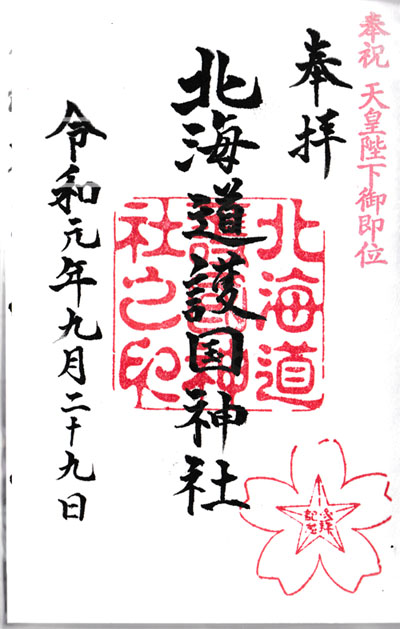 奉祝 天皇陛下御即位
奉拝
北海道護国神社
北海道
護国神
社之印
令和元年九月二十九日
参拝
記念